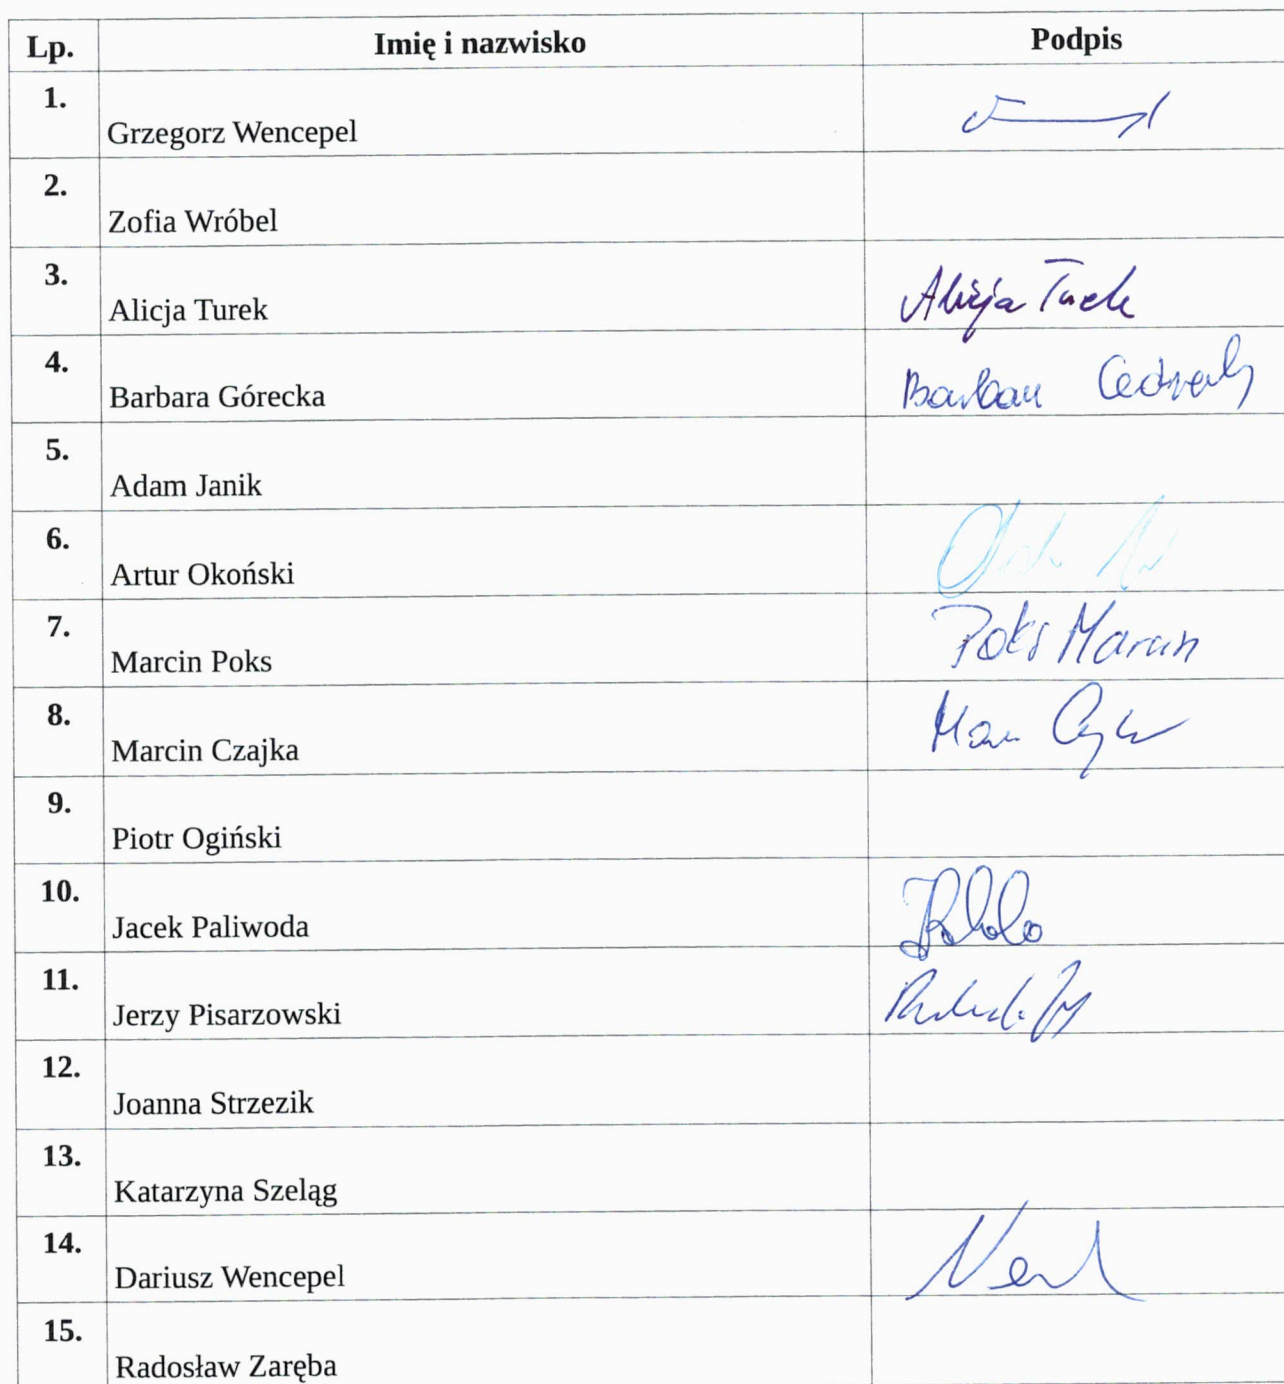 Lp. Imię i nazwisko Podpis
1.
Grzegorz Wencepel
2.
Zofia Wróbel
3.
Alicja Turek Alicja Turek
4.
Barbara Górecka Barbara
5.
Adam Janik
6.
Artur Okoński
7.
Marcin Poks Poks Marcin
8.
Marcin Czajka
9.
Piotr Ogiński
10.
Jacek Paliwoda
11.
Jerzy Pisarzowski
12.
Joanna Strzezik
13.
Katarzyna Szeląg
14.
Dariusz Wencepel
15.
Radosław Zaręba